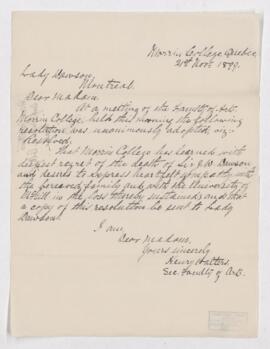 Morrin College Quebec,
21st Novr. 1899.
Lady Dawson,
Montreal.
Dear Madam,
At a meeting of the Faculty of Arts
Morrin College held this morning the following
resolution was unanimously adopted, viz:-
Resolved:-
That Morrin College has learned with
deepest regret of the death of Sir J. W. Dawson
and desires to express heartfelt sympathy with
the bereaved family and with the University of
McGill in the loss thereby sustained and that
a copy of this resolution be sent to Lady
Dawson.
I am,
Dear Madam,
Yours sincerely
Henry Walters,
Sec. Faculty of Arts.